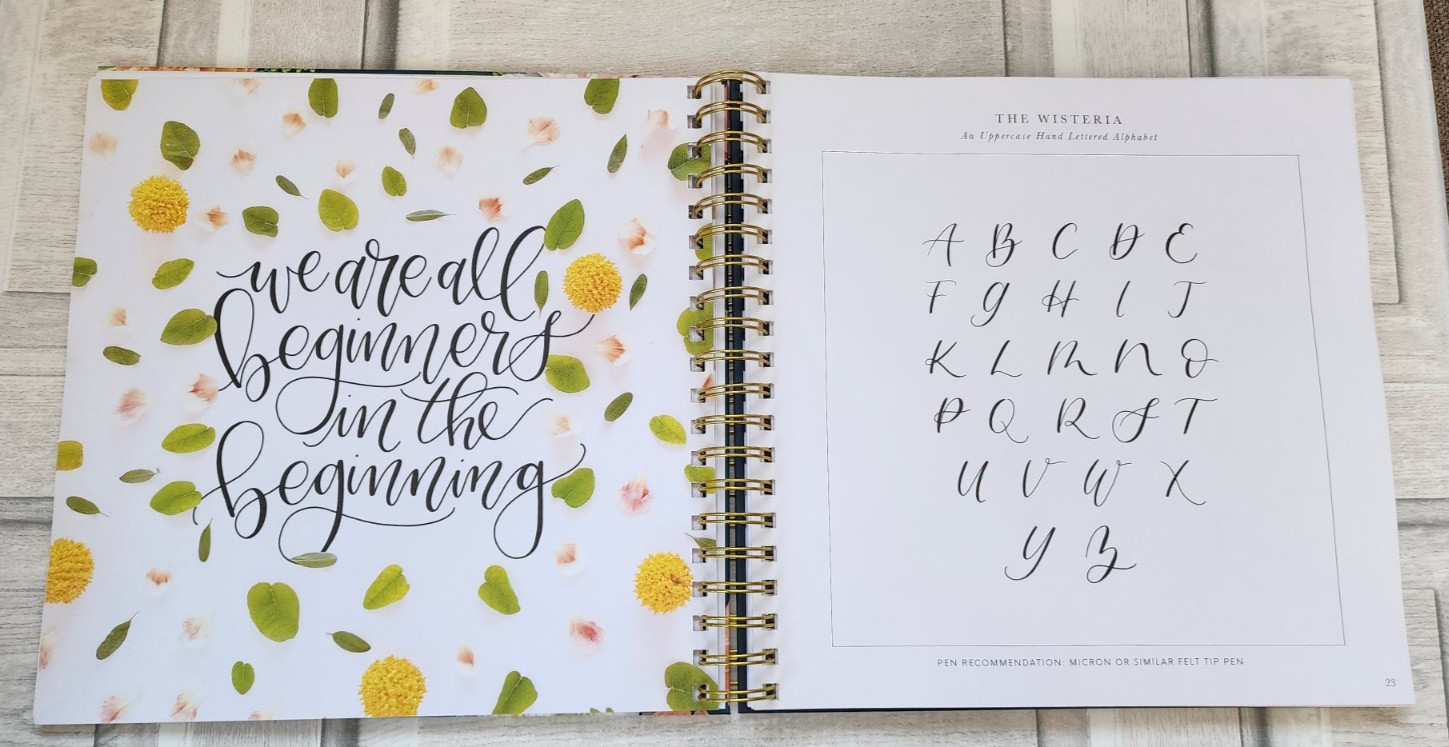 we are all
beginners
in the
beginning
THE WISTERIA
An Uppercase Hand Lettered Alphabet
A B C D E
F G H I J
K L M N O
P Q R S T
U V W X
Y Z
PEN RECOMMENDATION: MICRON OR SIMILAR FELT TIP PEN
23